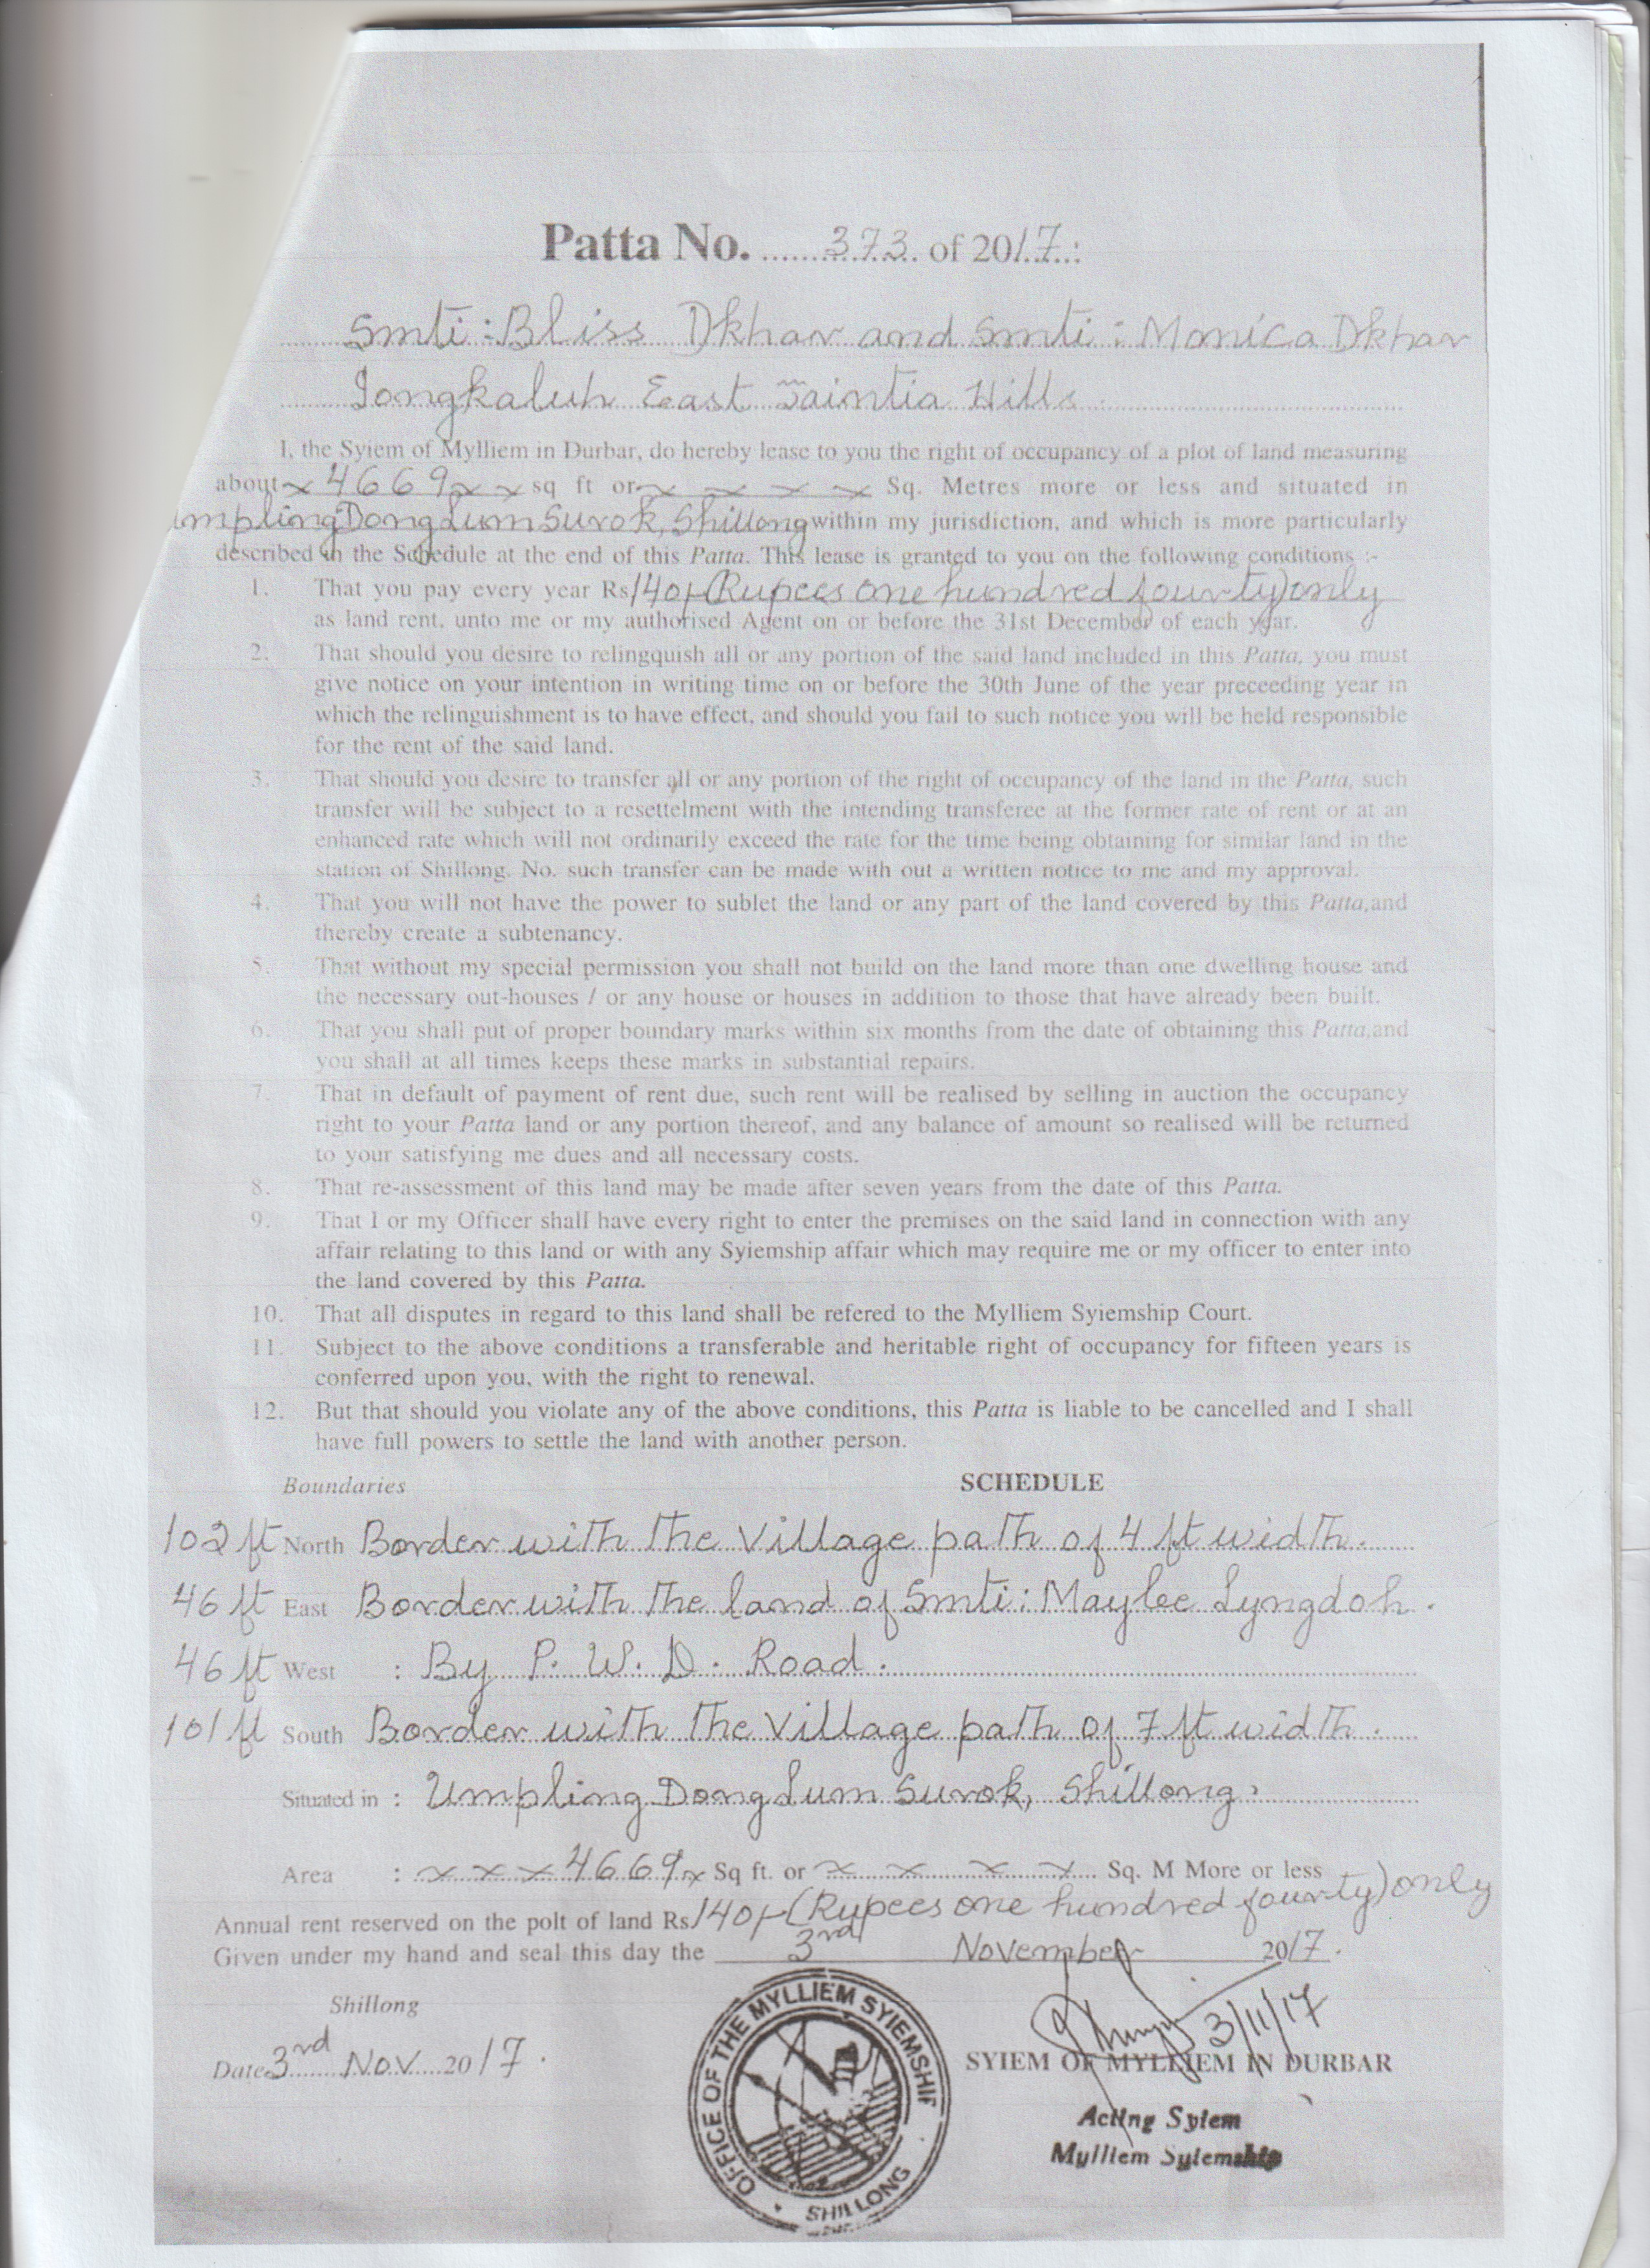 Patta No. 373 of 2017:
Smti: Bliss Dkhar and Smti: Monica Dkhar
Iongkaluh East Jaintia Hills
I, the Syiem of Mylliem in Durbar, do hereby lease to you the right of occupancy of a plot of land measuring
about x 4669 x x sq ft or x x x x Sq. Metres more or less and situated in
umpling Dong Lum Surok, Shillong within my jurisdiction, and which is more particularly
described in the Schedule at the end of this Patta. This lease is granted to you on the following conditions :-
1. That you pay every year Rs 140/- (Rupees one hundred fourty) only
as land rent, unto me or my authorised Agent on or before the 31st December of each year.
2. That should you desire to relingquish all or any portion of the said land included in this Patta, you must
give notice on your intention in writing time on or before the 30th June of the year preceeding year in
which the relinguishment is to have effect, and should you fail to such notice you will be held responsible
for the rent of the said land.
3. That should you desire to transfer all or any portion of the right of occupancy of the land in the Patta, such
transfer will be subject to a resettelment with the intending transferee at the former rate of rent or at an
enhanced rate which will not ordinarily exceed the rate for the time being obtaining for similar land in the
station of Shillong. No. such transfer can be made with out a written notice to me and my approval.
4. That you will not have the power to sublet the land or any part of the land covered by this Patta,and
thereby create a subtenancy.
5. That without my special permission you shall not build on the land more than one dwelling house and
the necessary out-houses / or any house or houses in addition to those that have already been built.
6. That you shall put of proper boundary marks within six months from the date of obtaining this Patta,and
you shall at all times keeps these marks in substantial repairs.
7. That in default of payment of rent due, such rent will be realised by selling in auction the occupancy
right to your Patta land or any portion thereof, and any balance of amount so realised will be returned
to your satisfying me dues and all necessary costs.
8. That re-assessment of this land may be made after seven years from the date of this Patta.
9. That I or my Officer shall have every right to enter the premises on the said land in connection with any
affair relating to this land or with any Syiemship affair which may require me or my officer to enter into
the land covered by this Patta.
10. That all disputes in regard to this land shall be refered to the Mylliem Syiemship Court.
11. Subject to the above conditions a transferable and heritable right of occupancy for fifteen years is
conferred upon you, with the right to renewal.
12. But that should you violate any of the above conditions, this Patta is liable to be cancelled and I shall
have full powers to settle the land with another person.
Boundaries SCHEDULE
102 ft North Border with the Village path of 4 ft width.
46 ft East Border with the land of Smti: Maylee Lyngdoh.
46 ft West : By P. W. D. Road.
101 ft South Border with the Village path of 7 ft width.
Situated in : Umpling Dong Lum Surok, Shillong.
Area : x x x 4669 x Sq ft. or x x x x Sq. M More or less
Annual rent reserved on the polt of land Rs 140/- (Rupees one hundred fourty) only
Given under my hand and seal this day the 3rd November 2017.
Shillong
3/11/17
Date 3rd Nov 2017.
SYIEM OF MYLLIEM IN DURBAR
Acting Syiem
Mylliem Syiemship
OFFICE OF THE MYLLIEM SYIEMSHIP
SHILLONG